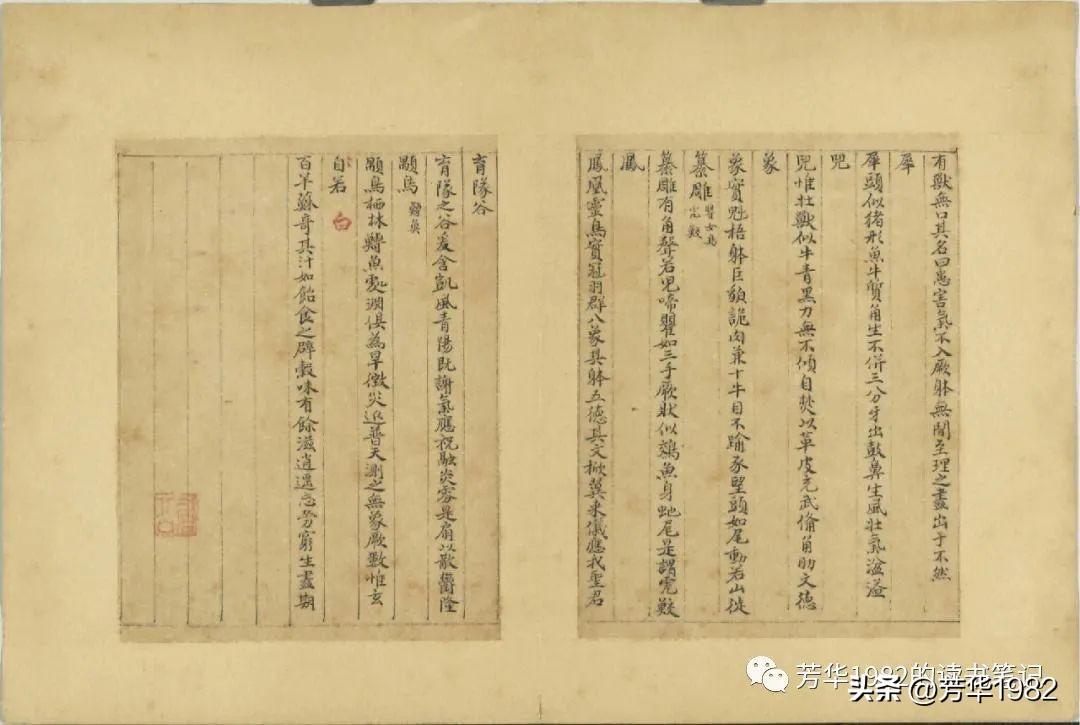 有獸無口其名曰患害氣不入厥躰無間至理之盡出于不然
犀
犀頭似猪形兼牛質角生不併三分牙出鼓鼻生風壯氣溢溢
兕
兕惟壯獸似牛青黑力無不傾自焚以革皮充武備角助文德
象
象實魁梧躰巨貌詭肉兼十牛目不踰豕望頭如尾動若山徙
纂雕 瞿如鳥 虎蛟
纂雕有角聲若兒啼瞿如三手厥狀似鵁魚身虵尾是謂虎蛟
鳳
鳳凰靈鳥實冠羽群八象其躰五德其文掀翼來儀應我聖君
育隧谷
育隧之谷爰含凱風青陽既謝氣應祝融炎雰是扇以散鬱隆
顒鳥 鱄魚
顒鳥栖林鱄魚處淵俱為旱徵災延普天測之無象厥數惟玄
白䓘
百䓘蘇奇其汁如飴食之辟穀味有餘滋逍遙忘勞窮生盡期
芳华1982的读书笔记
头条 @芳华1982